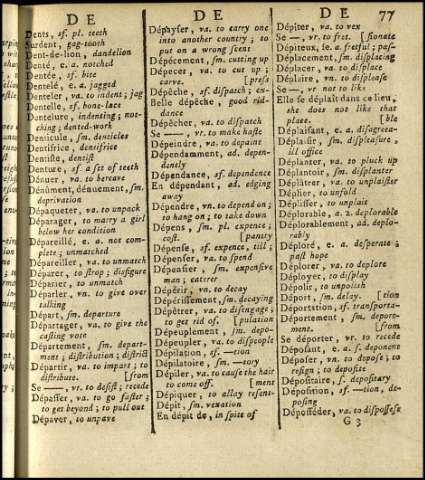 DE
DE
DE
77
Dents, sf. pl. teeth
Surdent, gag-tooth
Dent-de-lion, dandelion
Denté, e a. notched
Dentée, sf. bite
Dentelé, e a. jagged
Denteler, va. to indent; jag
Dentelle, sf. bone-lace
Dentelure, indenting; not-
ching; dented-work
Denticule, sm. denticles
Dentifrice, dentifrice
Dentiste, dentist
Denture, sf. a set of teeth
Dénuer, va. to deprave
Dénûment, dénuement, sm.
deprivation
Dépaqueter, va. to unpack
Déparager, to marry a girl
below her condition
Dépareillé, e. a. not com-
plete; unmatched
Dépareiller, va. to unmatch
Déparer, to strop; disfigure
Déparier, to unmatch
Déparler, vn. to give over
talking
Départ, sm. departure
Départager, va. to give the
casting vote
Département, sm. depart-
ment; distribution; district
Départir, va. to impart; to
distribute. [from
Se —, vr. to desist; recede
Dépasser, va. to go faster;
to get beyond; to pull out
Dépaver, to unpave
Dépayser, va. to carry one
into another country; to
put on a wrong scent
Dépécement, sm. cutting up
Dépecer, va. to cut up;
carve. [press
Dépêche, sf. dispatch; ex-
Belle dépêche, good rid-
dance
Dépêcher, va. to dispatch
Se —, vr. to make haste
Dépeindre, va. to depaint
Dépendamment, ad. depen-
dantly
Dépendance, sf. dependence
En dépendant, ad. edging
away
Dépendre, vn. to depend on;
to hang on; to take down
Dépens, sm. pl. expence;
cost. [pantry
Dépense, sf. expence, till;
Dépenser, va. to spend
Dépensier, sm. expensive
man; caterer
Dépérir, vn. to decay
Dépérissement, sm. decaying
Dépêtrer, va. to disengage;
to get rid of. [pulation
Dépeuplement, sm. depo-
Dépeupler, va. to dispeople
Dépilation, sf. —tion
Dépilatoire, sm. —tory
Dépiler, va. to cause the hair
to come off. [ment
Dépiquer, to allay resent-
Dépit, sm. vexation
En dépit de, in spite of
Dépiter, va. to vex
Se —, vr. to fret. [sionate
Dépiteux, se a. fretful; pas-
Déplacement, sm. displacing
Déplacer, va. to displace
Déplaire, vn. to displease
Se —, vr. not to like
Elle se déplaît dans ce lieu,
she does not like that
place. [ble
Déplaisant, e a. disagreea-
Déplaisir, sm. displeasure,
ill office
Déplanter, va. to pluck up
Déplantoir, sm. displanter
Déplâtrer, va. to unplaister
Déplier, to unfold
Déplisser, to unplait
Déplorable, a. 2. deplorable
Déplorablement, ad. deplo-
rably
Déploré, e a. desperate;
past hope
Déplorer, va. to deplore
Déployer, to display
Dépolir, to unpolish
Déport, sm. delay. [tion
Déportation, sf. transporta-
Déportement, sm. deport-
ment. [from
Se déporter, vr. to recede
Déposant, e a. s. deponent
Déposer, vn. to depose; to
resign; to deposite
Dépositaire, s. depositary
Déposition, sf. —tion, de-
posing
Déposséder, va. to dispossess
G 3